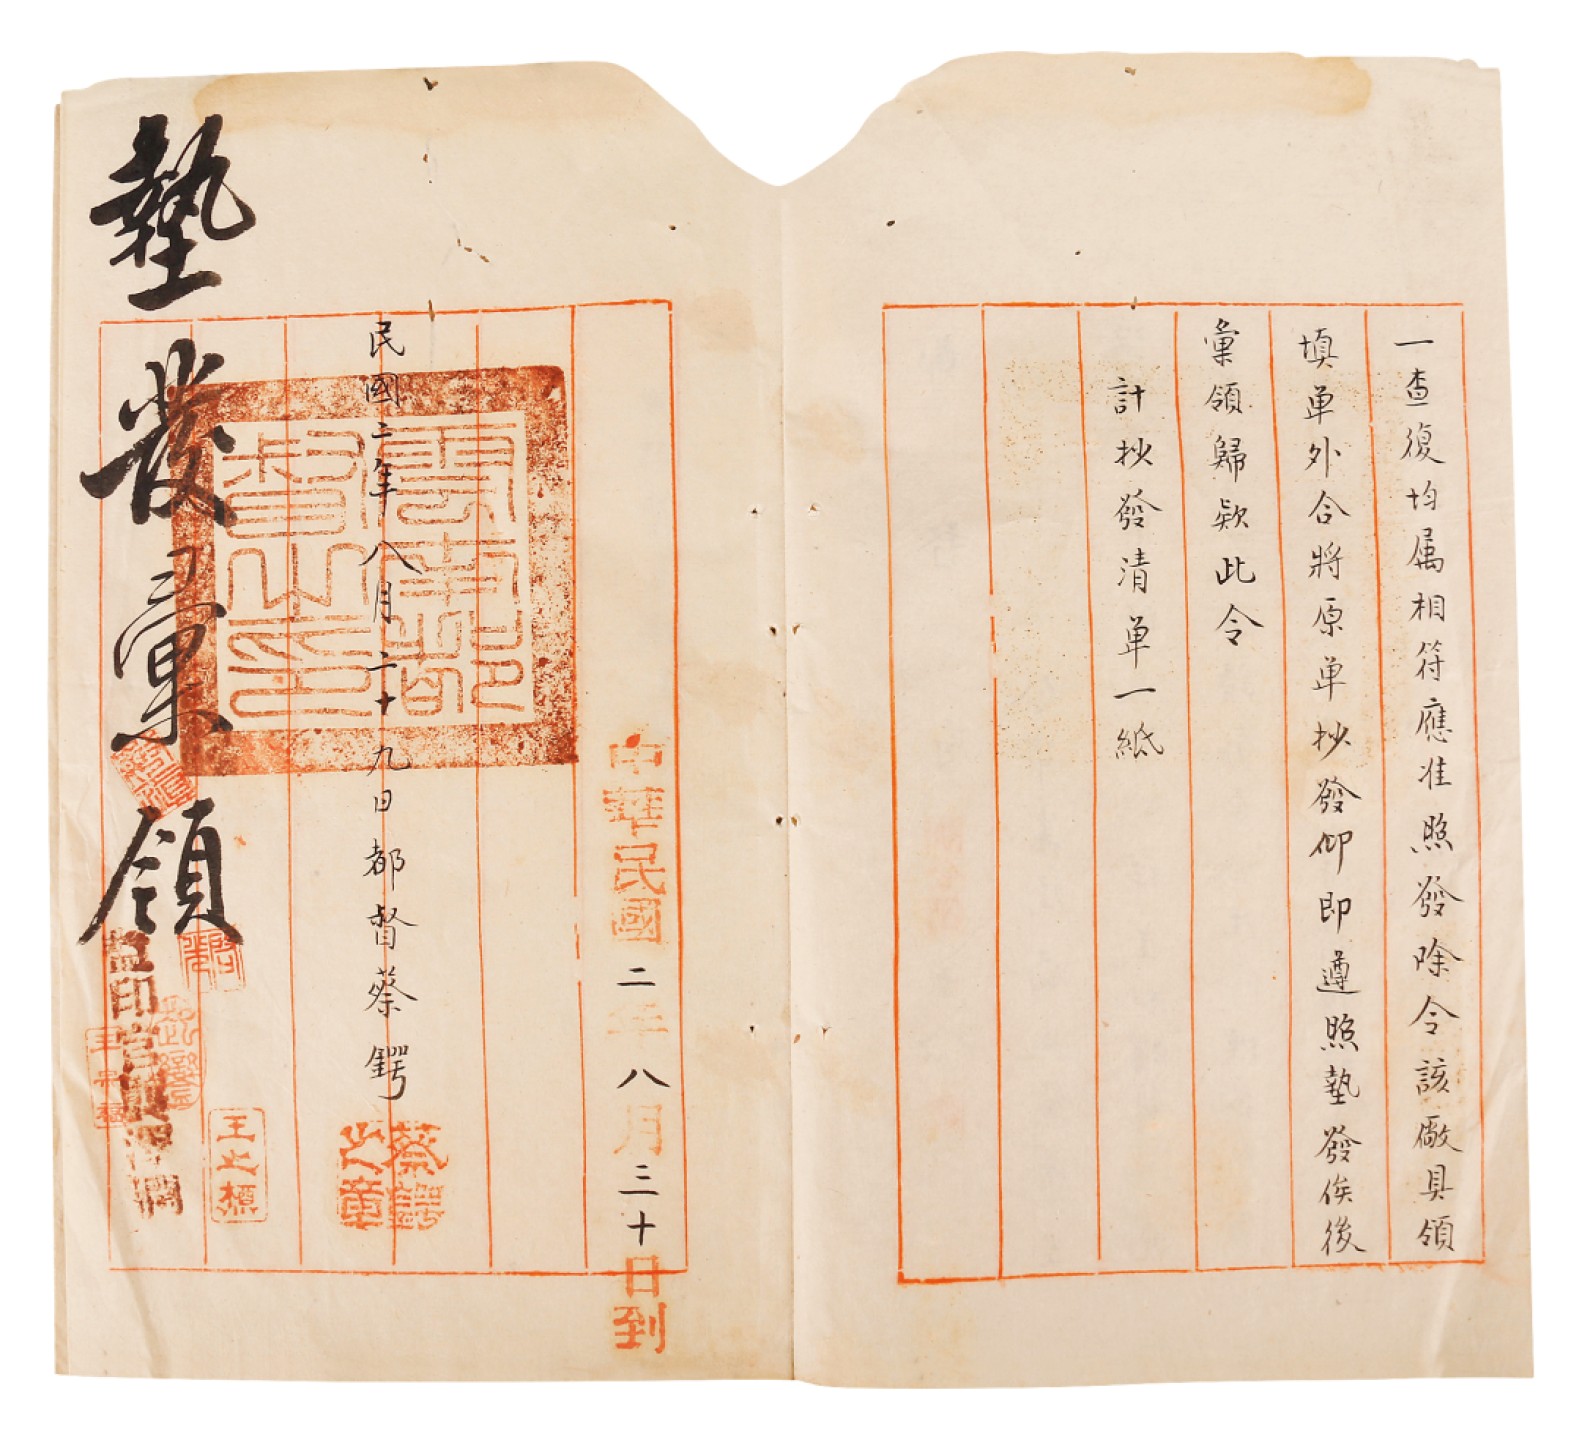 一查復均属相符應准照發除令該廠具領
填单外合將原单抄發仰即遵照墊發俟後
彙領歸欵此令
計抄發清单一紙
中華民國二年八月三十日到
民國二年八月二十九日都督蔡鍔
蔡鍔之章
雲南都督之印
墊發彙領
監印官
王之楨